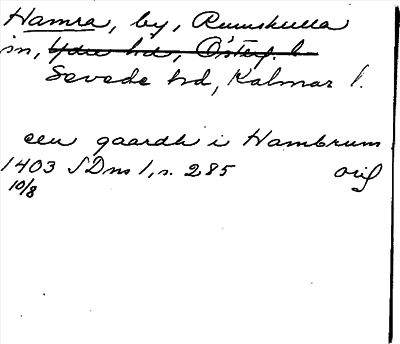 Hamra, by, Rumskulla
sn, Ydre hd, Österg. l.
Sevede hd, Kalmar l.
een gaardh i Hambrum
1403 SDns 1, s. 285 orig
10/8